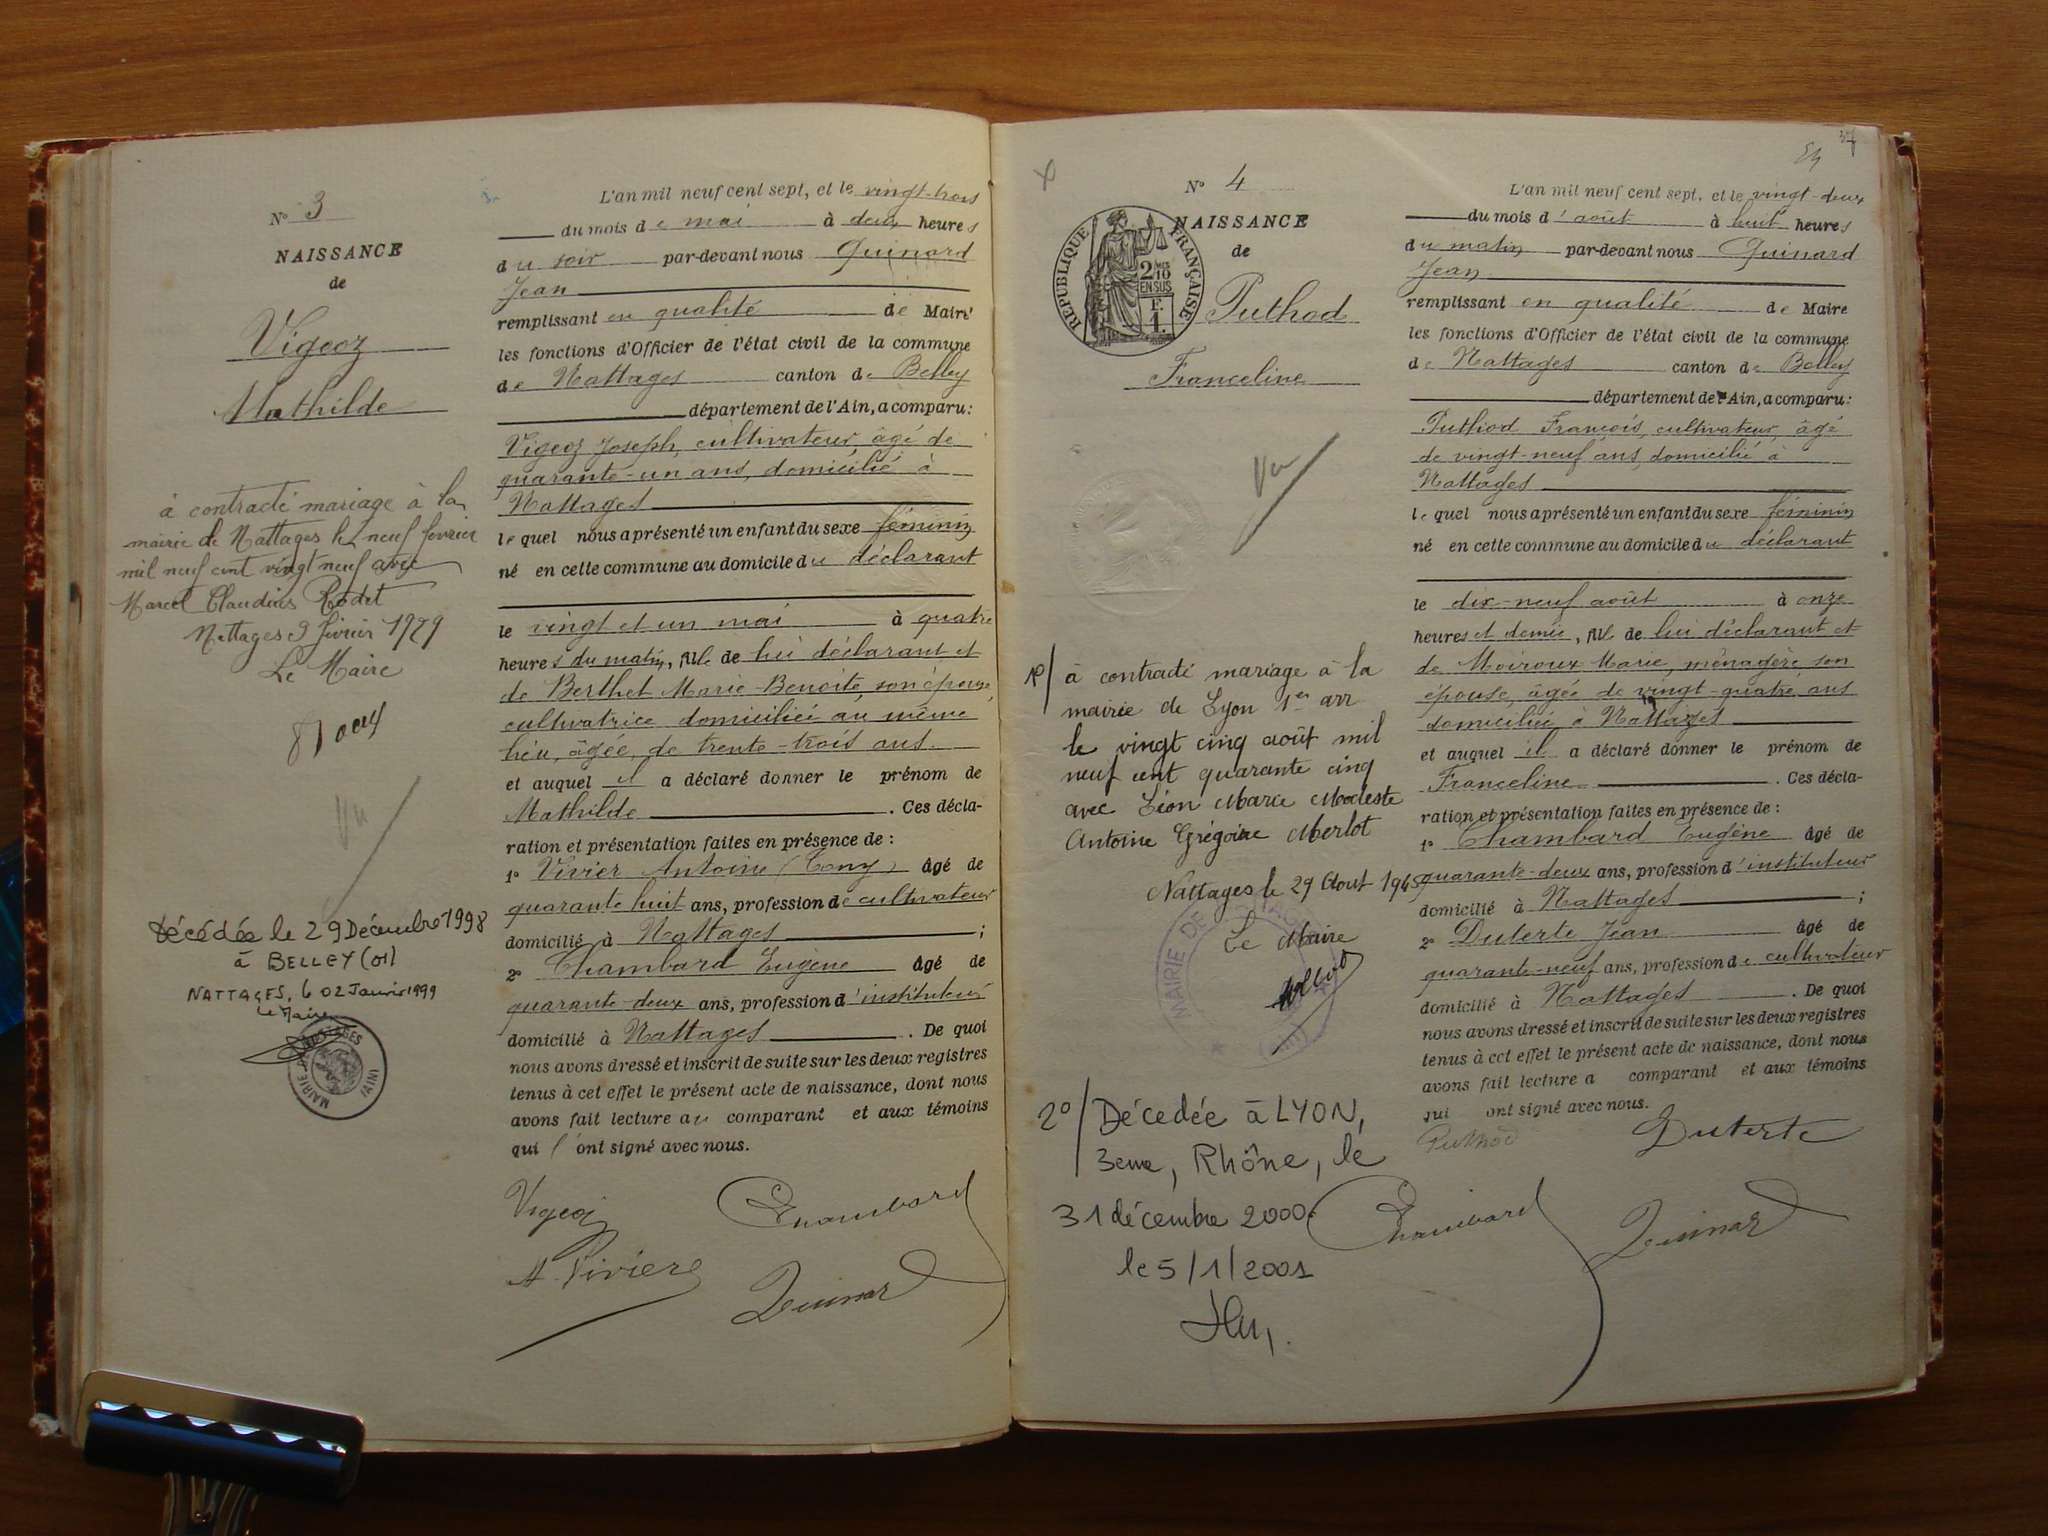 N° 3
NAISSANCE
de
Vigeoz
Mathilde
à contracté mariage à la
mairie de Nattages le neuf fevrier
mil neuf cent vingt neuf avec
Marcel Claudius Rodet
Nattages 9 février 1929
Le Maire
Vu
Décédée le 29 Décembre 1998
à BELLEY (01)
NATTAGES, le 02 Janvier 1999
Le Maire
MAIRIE NATTAGES (AIN)
L'an mil neuf cent sept, et le vingt-trois
du mois de mai à deux heures
du soir par-devant nous Guinard
Jean
remplissant en qualité de Maire
les fonctions d'Officier de l'état civil de la commune
de Nattages canton de Belley
département de l'Ain, a comparu:
Vigeoz Joseph, cultivateur, âgé de
quarante-un ans, domicilié à
Nattages
lequel nous a présenté un enfant du sexe féminin
né en cette commune au domicile du déclarant
le vingt et un mai à quatre
heures du matin, fille de lui déclarant et
de Berthet Marie-Benoite, son épouse,
cultivatrice domiciliée au même
lieu, âgée de trente-trois ans.
et auquel il a déclaré donner le prénom de
Mathilde. Ces décla-
ration et présentation faites en présence de :
1° Vivier Antoine (Tony) âgé de
quarante huit ans, profession de cultivateur
domicilié à Nattages ;
2° Chambard Eugène âgé de
quarante-deux ans, profession d'instituteur
domicilié à Nattages. De quoi
nous avons dressé et inscrit de suite sur les deux registres
tenus à cet effet le présent acte de naissance, dont nous
avons fait lecture au comparant et aux témoins
qui l'ont signé avec nous.
Vigeoz Chambard
A. Vivier Guinard
37
54
N° 4
RÉPUBLIQUE FRANÇAISE
2/10 EN SUS
F. 1.
NAISSANCE
de
Puthod
Franceline
Vu
1°/ à contracté mariage à la
mairie de Lyon 1er arr
le vingt cinq août mil
neuf cent quarante cinq
avec Léon Marie Modeste
Antoine Grégoire Merlot
Nattages le 29 Aout 1945
Le Maire
MAIRIE DE NATTAGES
2°/ Décedée à LYON,
3eme, Rhône, le
31 décembre 2000.
le 5/1/2001
L'an mil neuf cent sept, et le vingt-deux
du mois d'août à huit heures
du matin par-devant nous Guinard
Jean
remplissant en qualité de Maire
les fonctions d'Officier de l'état civil de la commune
de Nattages canton de Belley
département de l'Ain, a comparu:
Puthod François, cultivateur, âgé
de vingt-neuf ans, domicilié à
Nattages
lequel nous a présenté un enfant du sexe féminin
né en cette commune au domicile du déclarant
le dix-neuf août à onze
heures et demie, fille de lui déclarant et
de Moiroux Marie, ménagère son
épouse, âgée de vingt-quatre ans
domiciliée à Nattages
et auquel il a déclaré donner le prénom de
Franceline. Ces décla-
ration et présentation faites en présence de :
1° Chambard Eugène âgé de
quarante-deux ans, profession d'instituteur
domicilié à Nattages ;
2° Duterte Jean âgé de
quarante-neuf ans, profession de cultivateur
domicilié à Nattages. De quoi
nous avons dressé et inscrit de suite sur les deux registres
tenus à cet effet le présent acte de naissance, dont nous
avons fait lecture a comparant et aux témoins
qui ont signé avec nous.
Puthod Duterte
Chambard Guinard